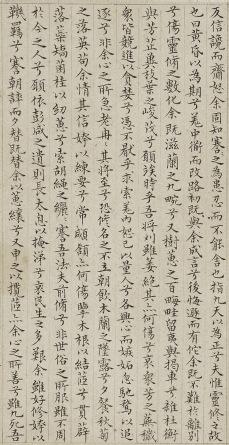 反信讒而齌怒余固知謇之為患忍而不能舍也指九天以為正兮夫惟靈修之故
也曰黃昏以為期兮羌中道而改路初既與余成言兮後悔遁而有佗余既不難離別
兮傷靈脩之數化余既滋蘭之九畹兮又樹蕙之百畮畦留夷與揭車兮雜杜衡
與芳芷冀枝葉之峻茂兮願竢時乎吾將刈雖萎絕其亦何傷兮哀衆芳之蕪穢
衆皆競進以貪婪兮憑不猒乎求索羌内恕己以量人兮各興心而嫉妒忽馳騖以追
逐兮非余心之所急老冉冉其將至兮恐脩名之不立朝飲木蘭之墜露兮夕餐秋菊
之落英苟余情其信姱以練要兮長顑頷亦何傷擥木根以結茝兮貫薜荔之
落蕊矯菌桂以紉蕙兮索胡繩之纚纚謇吾法夫前脩兮非世俗之所服雖不周
於今之人兮願依彭咸之遺則長太息以掩涕兮哀民生之多艱余雖好修姱以
鞿羈兮謇朝誶而夕替既替余以蕙纕兮又申之以攬茝亦余心之所善兮雖九死